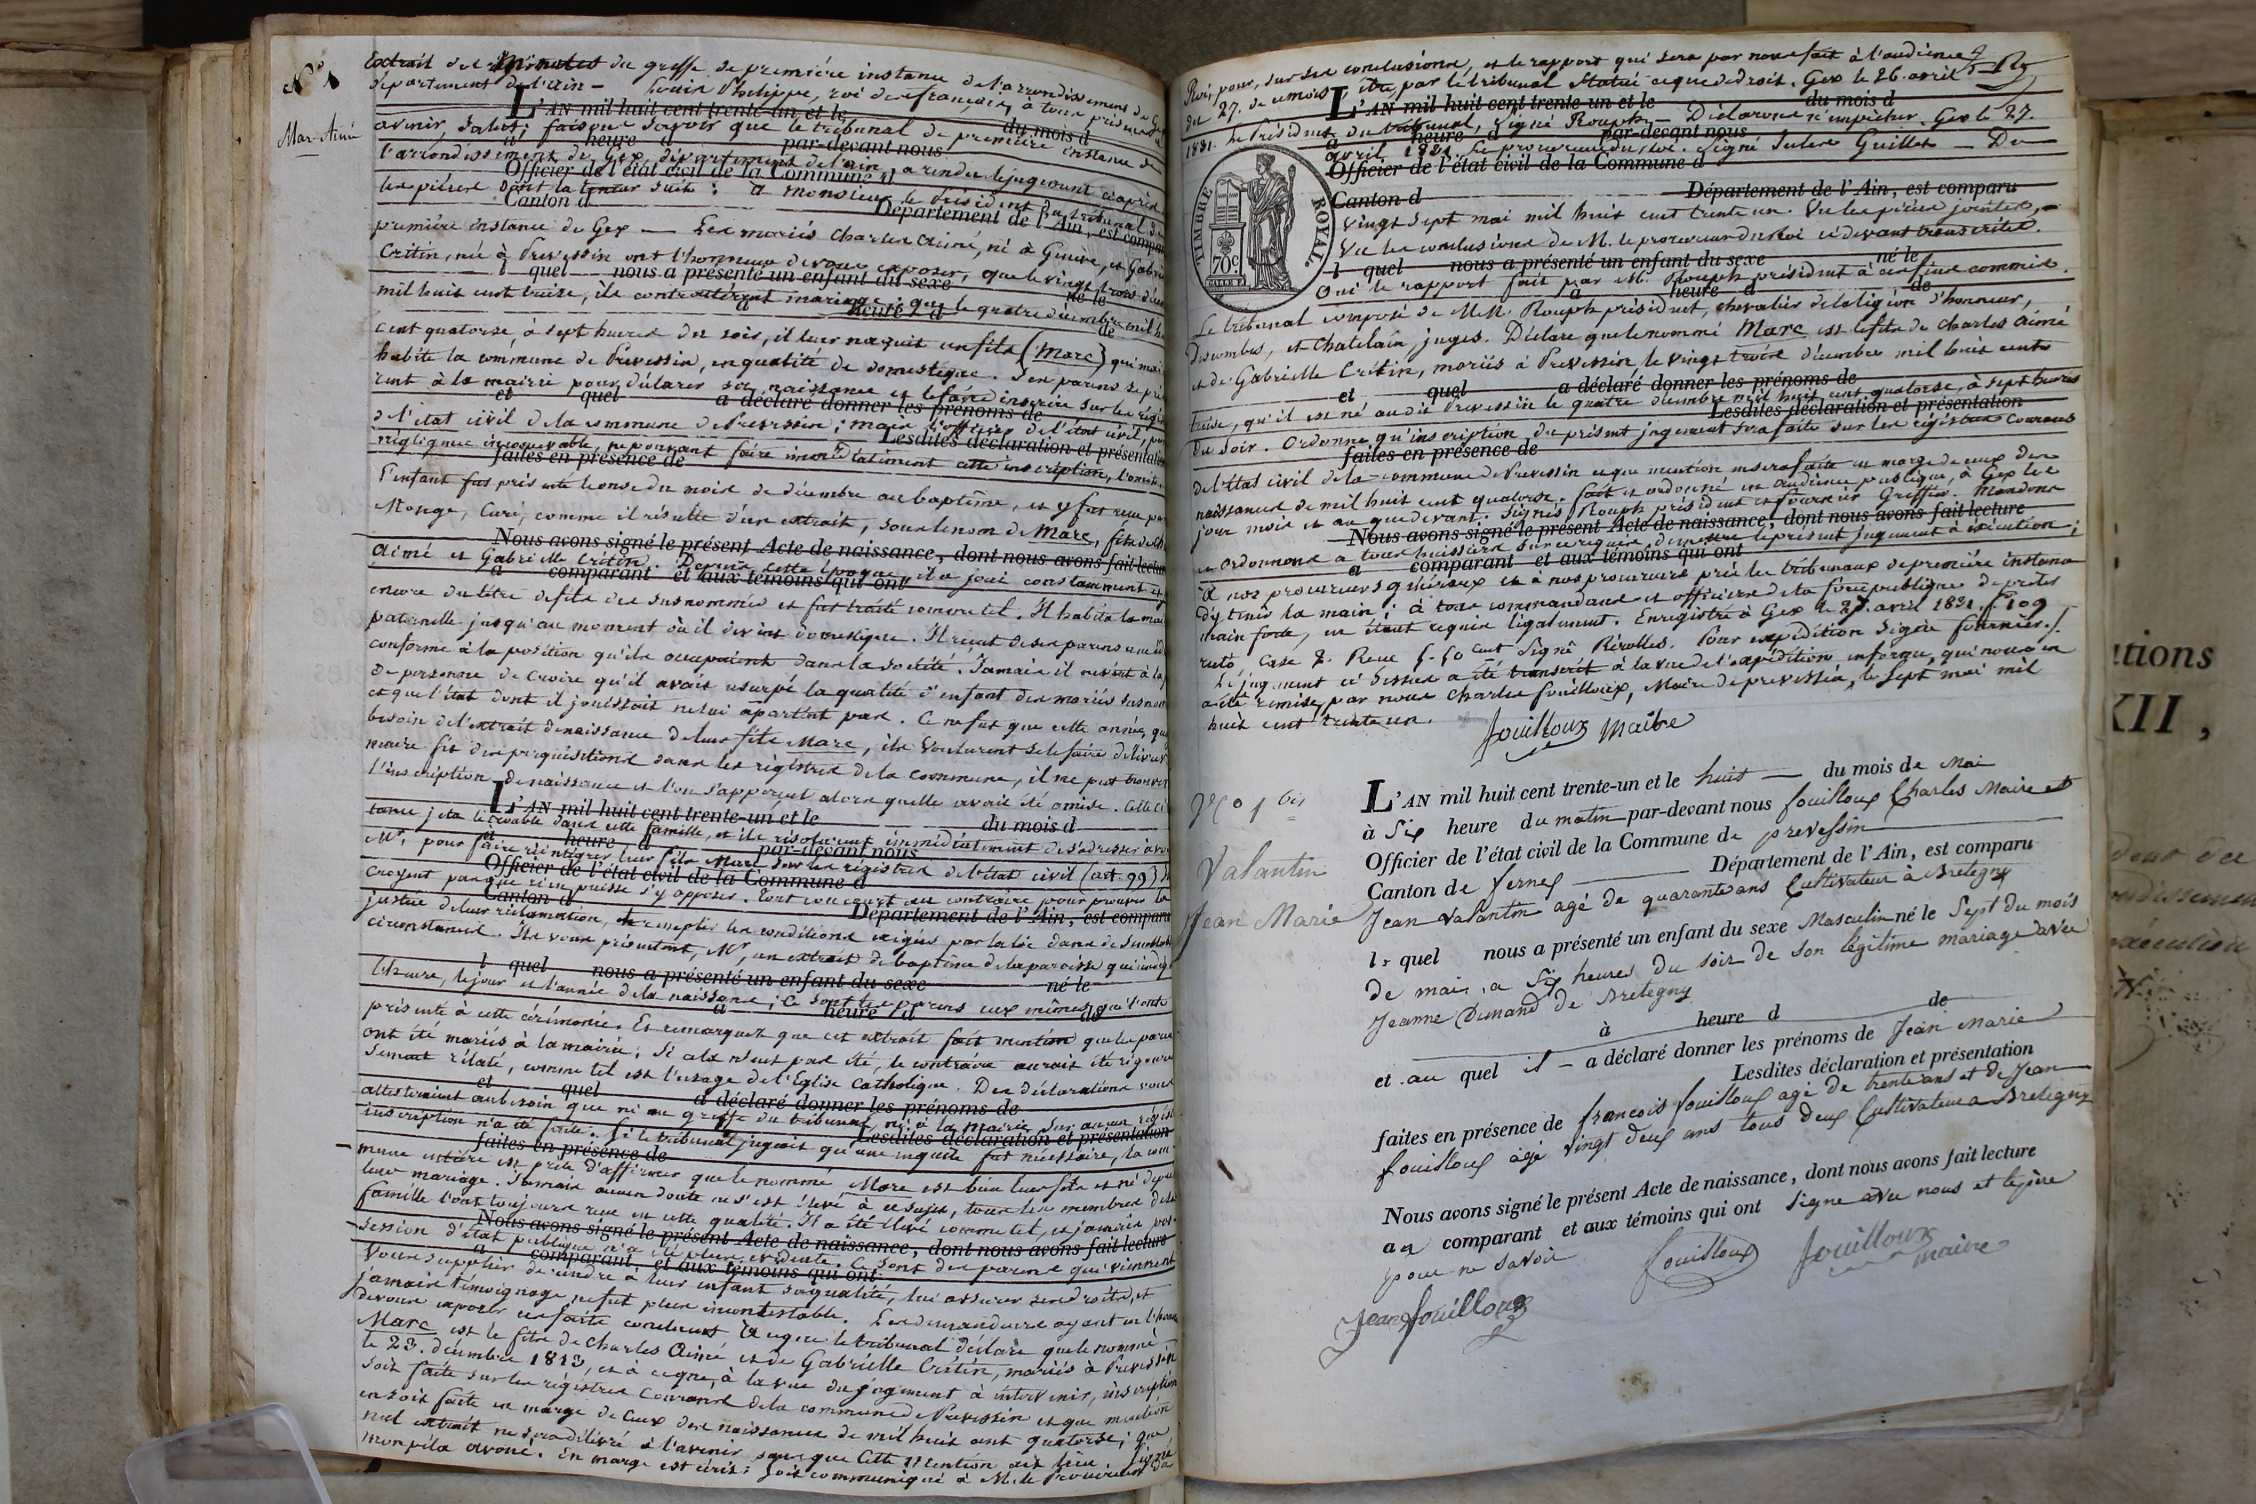 N.° 1
Marc Aimé
Extrait des Minutes du greffe de première instance de l'arrondissement de Gex
département de l'ain - Louis Philippe, roi des français, à tous présens et
L'AN mil huit cent trente-un et le du mois d
avenir, salut; faisons savoir que le tribunal de première instance de
à heure d par-devant nous
l'arrondissement de Gex, département de l'ain, a rendu le jugement ci après
Officier de l'état civil de la Commune d
les pièces dont la teneur suit : à Monsieur le Président du tribunal de
Canton d Département de l'Ain, est comparu
première instance de Gex — Les mariés Charles Aimé, né à Genève, et Gabrielle
Critin, née à Prevessin ont l'honneur de vous exposer, que le vingt trois décembre
l quel nous a présenté un enfant du sexe né le
mil huit cent treize, ils contractèrent mariage; que le quatre décembre mil huit
à heure d de
cent quatorze, à sept heures du soir, il leur naquit un fils (Marc) qui
habite la commune de Prevessin, en qualité de domestique. Ses parens se
à la mairie pour déclarer sa naissance et le faire inscrire sur les
et quel a déclaré donner les prénoms de
de l'état civil de la commune de Prevessin; mais l'officier de l'état civil, par
Lesdites déclaration et présentation
négligence inconcevable, ne pouvant faire immédiatement cette inscription,
faites en présence de
l'enfant fut présenté le onze du mois de décembre au baptême, et y fut reçu par
Monge, Curé, comme il résulte d'un extrait, sous le nom de Marc, fils de
Nous avons signé le présent Acte de naissance, dont nous avons fait lecture
Aimé et Gabrielle Critin. Depuis cette époque, il a joui constamment et
a comparant et aux témoins qui ont
encore du titre de fils des susnommés et fut traité comme tel. Il habita la
paternelle jusqu'au moment où il devint domestique. Il reçut de ses parens une
conforme à la position qu'ils occupaient dans la société. Jamais il ne vint à la
de personne de croire qu'il avait usurpé la qualité d'enfant des mariés
et que l'état dont il jouissait ne lui apartint pas. Ce ne fut que cette année,
besoin de l'extrait de naissance de leur fils Marc, ils voulurent se le faire délivrer
maire fit des perquisitions dans les régistres de la commune, il ne put trouver
l'inscription de naissance et l'on s'apperçut alors quelle avait été omise. Cette
L'AN mil huit cent trente-un et le du mois d
jeta le trouble dans cette famille, et ils résolurent immédiatement de s'adresser à vous
à heure d par-devant nous
Mr. pour faire réintégrer leur fils Marc sur les régistres de l'état civil (art. 99)
Officier de l'état civil de la Commune d
croyent pas que rien puisse s'y opposer. Tout concourt au contraire pour prouver la
Canton d Département de l'Ain, est comparu
justice de leur réclamation, et remplir les conditions exigées par la loi dans de
circonstances. Ils vous présentent, Mr, un extrait de baptême de la paroisse qui indique
l quel nous a présenté un enfant du sexe né le
l'heure, le jour et l'année de la naissance; Ce sont les parens eux mêmes qui l'ont
à heure d de
présenté à cette cérémonie. Et remarquez que cet extrait fait mention que les
ont été mariés à la mairie; si cela n'eut pas été, le contraire aurait été
relaté, comme tel est l'usage de l'Eglise Catholique. Des déclarations vous
et quel a déclaré donner les prénoms de
attesteraient au besoin que ni au greffe du tribunal, ni à la mairie, sur aucun
Lesdites déclaration et présentation
inscription n'a été faite. Si le tribunal jugeait qu'une enquête fut nécessaire, la
faites en présence de
entière est prête d'affirmer que le nommé Marc est bien leur fils et né depuis
leur mariage. Jamais aucun doute ne s'est élevé à ce sujet, tous les membres de la
famille l'ont toujours reçu en cette qualité. Il a été élevé comme tel, et jamais
Nous avons signé le présent Acte de naissance, dont nous avons fait lecture
session d'état publique n'a été plus évidente. Ce sont des parens qui viennent
a comparant et aux témoins qui ont
vous supplier de rendre à leur enfant sa qualité, lui assurer ses droits, et
jamais témoignage ne fut plus incontestable. Les demandeurs ayant eu l'honneur
de vous exposer ces faits concluent à ce que le tribunal déclare que le nommé
Marc est le fils de Charles Aimé et de Gabrielle Critin, mariés à Prevessin
le 23. décembre 1813, et à ce que, à la vue du jugement à intervenir, inscription
soit faite sur les régistres courans de la commune de Prevessin et que mention
en soit faite en marge de ceux des naissances de mil huit cent quatorze; que
nul extrait ne sera délivré à l'avenir sans que cette mention ait lieu. Signé
avoué. En marge est écrit: soit communiqué à M. le Procureur du
Roi, pour, sur ses conclusions, et le rapport qui sera par nous fait à l'audience
du 27. de ce mois être, par le tribunal statué ce que de droit. Gex le 26. avril
L'AN mil huit cent trente-un et le du mois d
1831. Le Président du tribunal, signé Rouph — Déclarons n'empêcher. Gex le 27.
à heure d par-devant nous
avril 1831 Le procureur du Roi. Signé Jules Guillet — Du
Officier de l'état civil de la Commune d
TIMBRE ROYAL.
70c
Canton d Département de l'Ain, est comparu
vingt sept mai mil huit cent trente un. Vu les pièces jointes,
Vu les conclusions de M. le procureur du Roi ci devant transcrites.
l quel nous a présenté un enfant du sexe né le
Oui le rapport fait par M. Rouph président à ces fins commis.
à heure d de
Le tribunal composé de MM. Rouph président, chevalier de la légion d'honneur,
Descombes, et Chatelain, juges. Déclare que le nommé Marc est le fils de Charles Aimé
et de Gabrielle Critin, mariés à Prevessin, le vingt trois décembre mil huit cent
et quel a déclaré donner les prénoms de
treize, qu'il est né au dit Prevessin le quatre décembre mil huit cent quatorze, à sept heures
Lesdites déclaration et présentation
du soir. Ordonne qu'inscription du présent jugement sera faite sur les régistres courans
faites en présence de
de l'Etat civil de la commune de Prevessin et que mention en sera faite en marge de ceux des
naissances de mil huit cent quatorze. fait et ordonné en audience publique, à Gex les
jour mois et an que devant. Signés Rouph président et fournier Greffier. Mandons
Nous avons signé le présent Acte de naissance, dont nous avons fait lecture
et ordonnons à tous huissiers sur ce requis, de mettre le présent jugement à exécution;
a comparant et aux témoins qui ont
à nos procureurs généraux et à nos procureurs près les tribunaux de première instance
d'y tenir la main; à tous commandans et officiers de la force publique de prêter
main forte, en étant requis légalement. Enregistré à Gex le 27. avril 1831. f.° 109
recto Case 7. Reçu 5-50 cent Signé Rérolles. Pour expédition Signé fournier.
Le jugement ci dessus a été transcrit à la vue de l'expédition en forme, qui nous en
a été remise, par nous Charles fouilloux, Maire de prevessin, le sept mai mil
huit cent trente un.
fouilloux maire
N.° 1 bis
Valantin
Jean Marie
L'AN mil huit cent trente-un et le huit — du mois de mai
à six heure du matin par-devant nous fouilloux Charles Maire et
Officier de l'état civil de la Commune de prevessin
Canton de fernex — Département de l'Ain, est comparu
Jean Valantin agé de quarante ans Cultivateur à Bretegny
le quel nous a présenté un enfant du sexe Masculin né le Sept du mois
de mai, a six heures du soir de son légitime mariage avec
Jeanne Dunand de Bretegny
à heure d de
et au quel il — a déclaré donner les prénoms de Jean Marie
Lesdites déclaration et présentation
faites en présence de francois fouilloux agé de trente ans et de Jean
fouilloux agé vingt deux ans tous deux Cultivateur a Bretegny
Nous avons signé le présent Acte de naissance, dont nous avons fait lecture
au comparant et aux témoins qui ont signe avec nous et le père
pour ne savoir
fouilloux fouilloux
maire
Jean fouilloux
itions
XII,